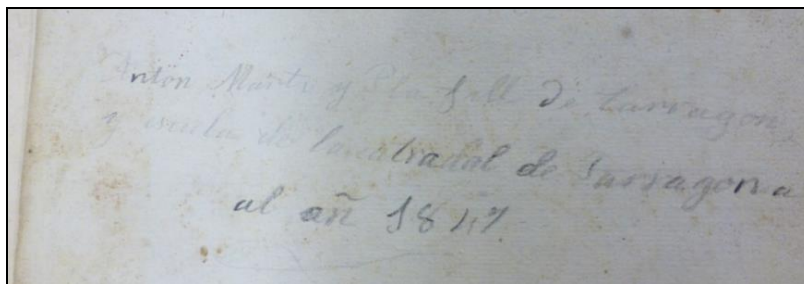 Anton Martí y Pla fill de Tarragona
y escula de la catradal de Tarragona
al añ 1847